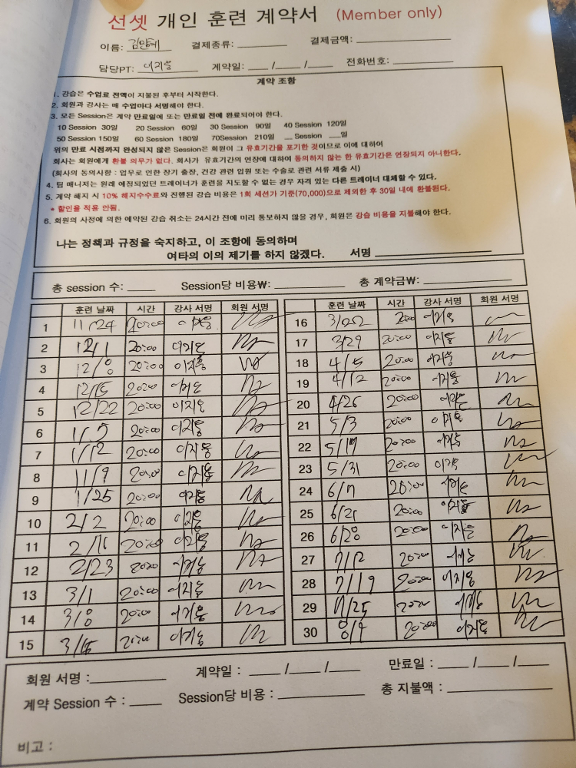 선셋 개인 훈련 계약서 (Member only)
이름: 결제종류: 결제금액:
담당PT: 이지웅 계약일: / / 전화번호:
계약 조항
1. 강습은 수업료 전액이 지불된 후부터 시작한다.
2. 회원과 강사는 매 수업마다 서명해야 한다.
3. 모든 Session은 계약 만료일에 또는 만료일 전에 완료되어야 한다.
10 Session 30일 20 Session 60일 30 Session 90일 40 Session 120일
50 Session 150일 60 Session 180일 70Session 210일 __ Session __일
위의 만료 시점까지 완성되지 않은 Session은 회원이 그 유효기간을 포기한 것이므로 이에 대하여
회사는 회원에게 환불 의무가 없다. 회사가 유효기간의 연장에 대하여 동의하지 않는 한 유효기간은 연장되지 아니한다.
(회사의 동의사항 : 업무로 인한 장기 출장, 건강 관련 입원 또는 수술로 관련 서류 제출 시)
4. 팀 매니저는 원래 예정되었던 트레이너가 훈련을 지도할 수 없는 경우 자격 있는 다른 트레이너 대체할 수 있다.
5. 계약 해지 시 10% 해지수수료와 진행된 강습 비용은 1회 세션가 기준(70,000)으로 제외한 후 30일 내에 환불된다.
* 할인율 적용 안됨.
6. 회원의 사정에 의한 예약된 강습 취소는 24시간 전에 미리 통보하지 않을 경우, 회원은 강습 비용을 지불해야 한다.
나는 정책과 규정을 숙지하고, 이 조항에 동의하며
여타의 이의 제기를 하지 않겠다. 서명
총 session 수: Session당 비용₩: 총 계약금₩:
훈련 날짜 시간 강사 서명 회원 서명
1 11/24 20:00 이지웅
2 12/1 20:00 이지웅
3 12/8 20:00 이지웅
4 12/15 20:00 이지웅
5 12/22 20:00 이지웅
6 1/5 20:00 이지웅
7 1/12 20:00 이지웅
8 1/19 20:00 이지웅
9 1/25 20:00 이지웅
10 2/2 20:00 이지웅
11 2/16 20:00 이지웅
12 2/23 2000 이지웅
13 3/1 20:00 이지웅
14 3/8 20:00 이지웅
15 3/15 20:00 이지웅
훈련 날짜 시간 강사 서명 회원 서명
16 20:00 이지웅
17 3/29 20:00 이지웅
18 4/5 20:00 이지웅
19 4/12 20:00 이지웅
20 4/26 20:00 이지웅
21 5/3 20:00 이지웅
22 5/17 20:00 이지웅
23 5/31 20:00 이지웅
24 6/7 20:00 이지웅
25 6/21 20:00 이지웅
26 6/28 20:00 이지웅
27 7/12 20:00 이지웅
28 7/19 20:00 이지웅
29 7/25 20:00 이지웅
30 20:00 이지웅
회원 서명 : 계약일 : / / 만료일 : / /
계약 Session 수 : Session당 비용 : 총 지불액 :
비고 :